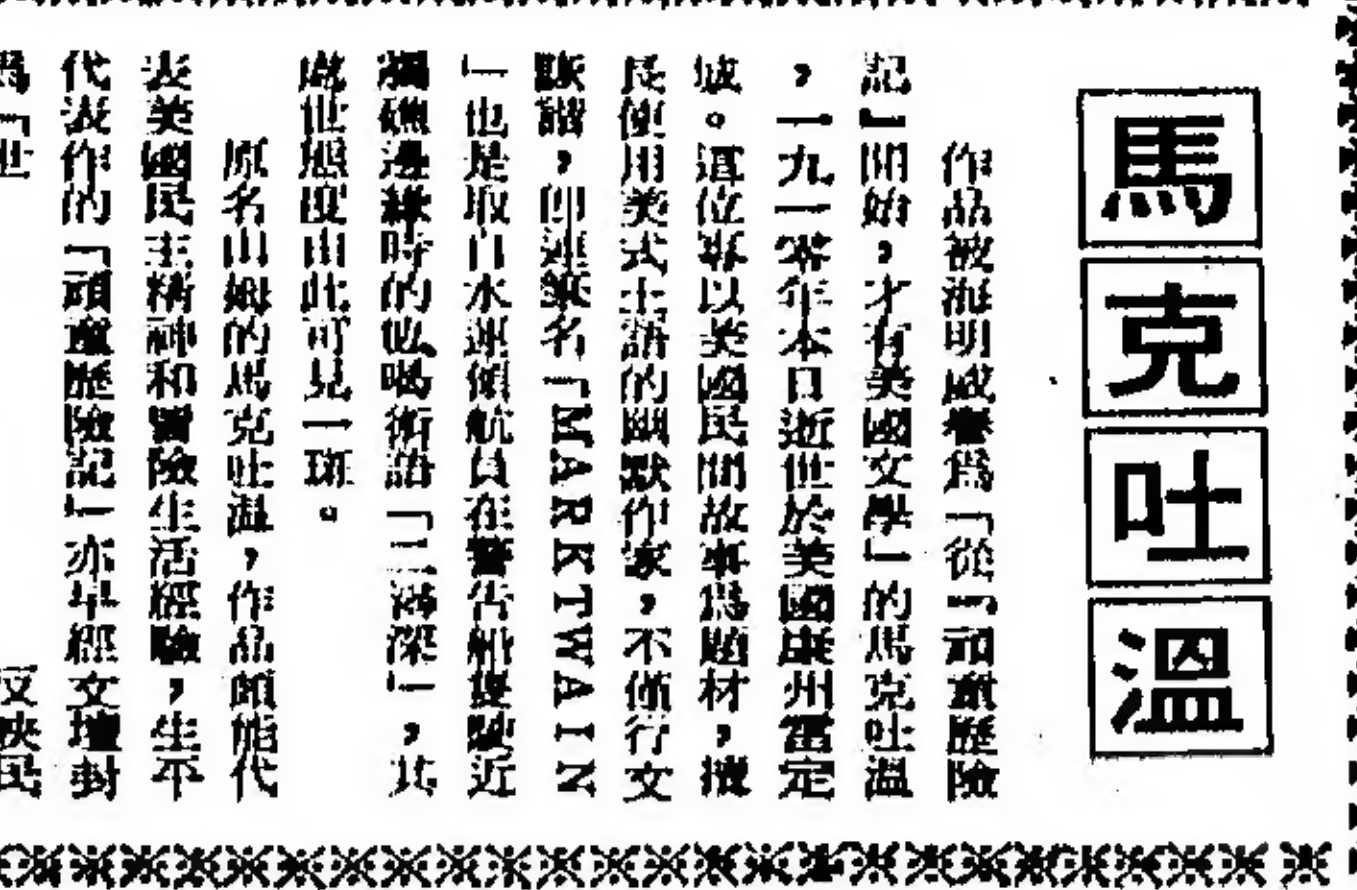 馬克吐溫
作品被海明威譽爲「從『頑童歷險
記』開始，才有美國文學」的馬克吐溫
，一九一零年本日逝世於美國康州雷定
城。這位專以美國民間故事爲題材，擅
長使用美式土語的幽默作家，不僅行文
詼諧，即連筆名「MARKTWAIN
」也是取自水運領航員在警告船隻駛近
礁邊緣時的吆喝術語「二潯深」，其
處世態度由此可見一斑。
原名山姆的馬克吐溫，作品頗能代
表美國民主精神和冒險生活經驗，生平
代表作的「頑童歷險記」亦早經文壇封
爲「世 反映民